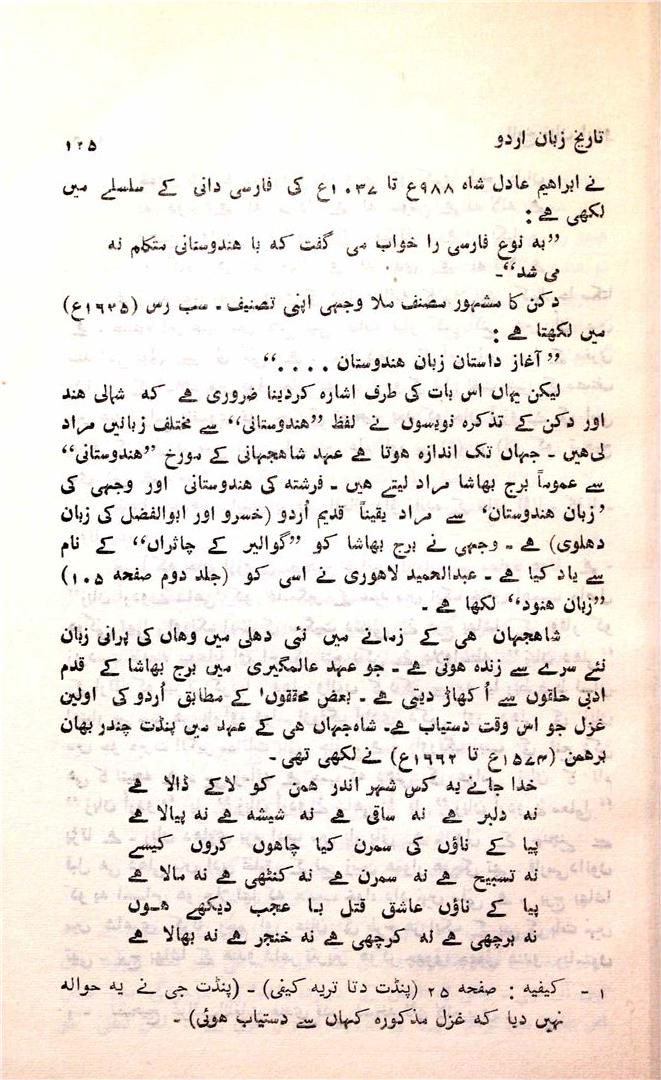 تاریخ زبان اردو
۱۲۵
نے ابراھیم عادل شاہ ۹۸۸ع تا ۱۰۳۷ع کی فارسی دانی کے سلسلے میں
لکھی ھے :
”بہ نوع فارسی را خواب می گفت کہ با ھندوستانی متکلم نہ
می شد“۔
دکن کا مشہور مصنف ملا وجہی اپنی تصنیف ۔ سب رس (۱۶۳۵ع)
میں لکھتا ھے :
”آغاز داستان زبان ھندوستان . . . .“
لیکن یہاں اس بات کی طرف اشارہ کردینا ضروری ھے کہ شمالی ھند
اور دکن کے تذکرہ نویسوں نے لفظ ”ھندوستانی“ سے مختلف زبانیں مراد
لی ھیں ۔ جہاں تک اندازہ ھوتا ھے عہد شاھجہانی کے مورخ ”ھندوستانی“
سے عموماً برج بھاشا مراد لیتے ھیں ۔ فرشتہ کی ھندوستانی اور وجہی کی
’زبان ھندوستان‘ سے مراد یقیناً قدیم اُردو (خسرو اور ابوالفضل کی زبان
دھلوی) ھے ۔ وجہی نے برج بھاشا کو ”گوالیر کے چاتراں“ کے نام
سے یاد کیا ھے ۔ عبدالحمید لاھوری نے اسی کو (جلد دوم صفحہ ۱۰۵)
”زبان ھنود“ لکھا ھے ۔
شاھجہان ھی کے زمانے میں نئی دھلی میں وھاں کی پرانی زبان
نئے سرے سے زندہ ھوتی ھے ۔ جو عہد عالمگیری میں برج بھاشا کے قدم
ادبی حلقوں سے اُکھاڑ دیتی ھے ۔ بعض محققوں۱ کے مطابق اُردو کی اولین
غزل جو اس وقت دستیاب ھے۔ شاہ جہاں ھی کے عہد میں پنڈت چندر بھان
برھمن (۱۵۷۴ع تا ۱۶۶۲ع) نے لکھی تھی ۔
خدا جانے یہ کس شہر اندر ھمن کو لاکے ڈالا ھے
نہ دلبر ھے نہ ساقی ھے نہ شیشہ ھے نہ پیالا ھے
پیا کے ناؤں کی سمرن کیا چاھوں کروں کیسے
نہ تسبیح ھے نہ سمرن ھے نہ کنٹھی ھے نہ مالا ھے
پیا کے ناؤں عاشق قتل با عجب دیکھے ھوں
نہ برچھی ھے نہ کرچھی ھے نہ خنجر ھے نہ بھالا ھے
۱ - کیفیہ : صفحہ ۲۵ (پنڈت دتا تریہ کیفی) - (پنڈت جی نے یہ حوالہ
نہیں دیا کہ غزل مذکورہ کہاں سے دستیاب ھوئی) ۔